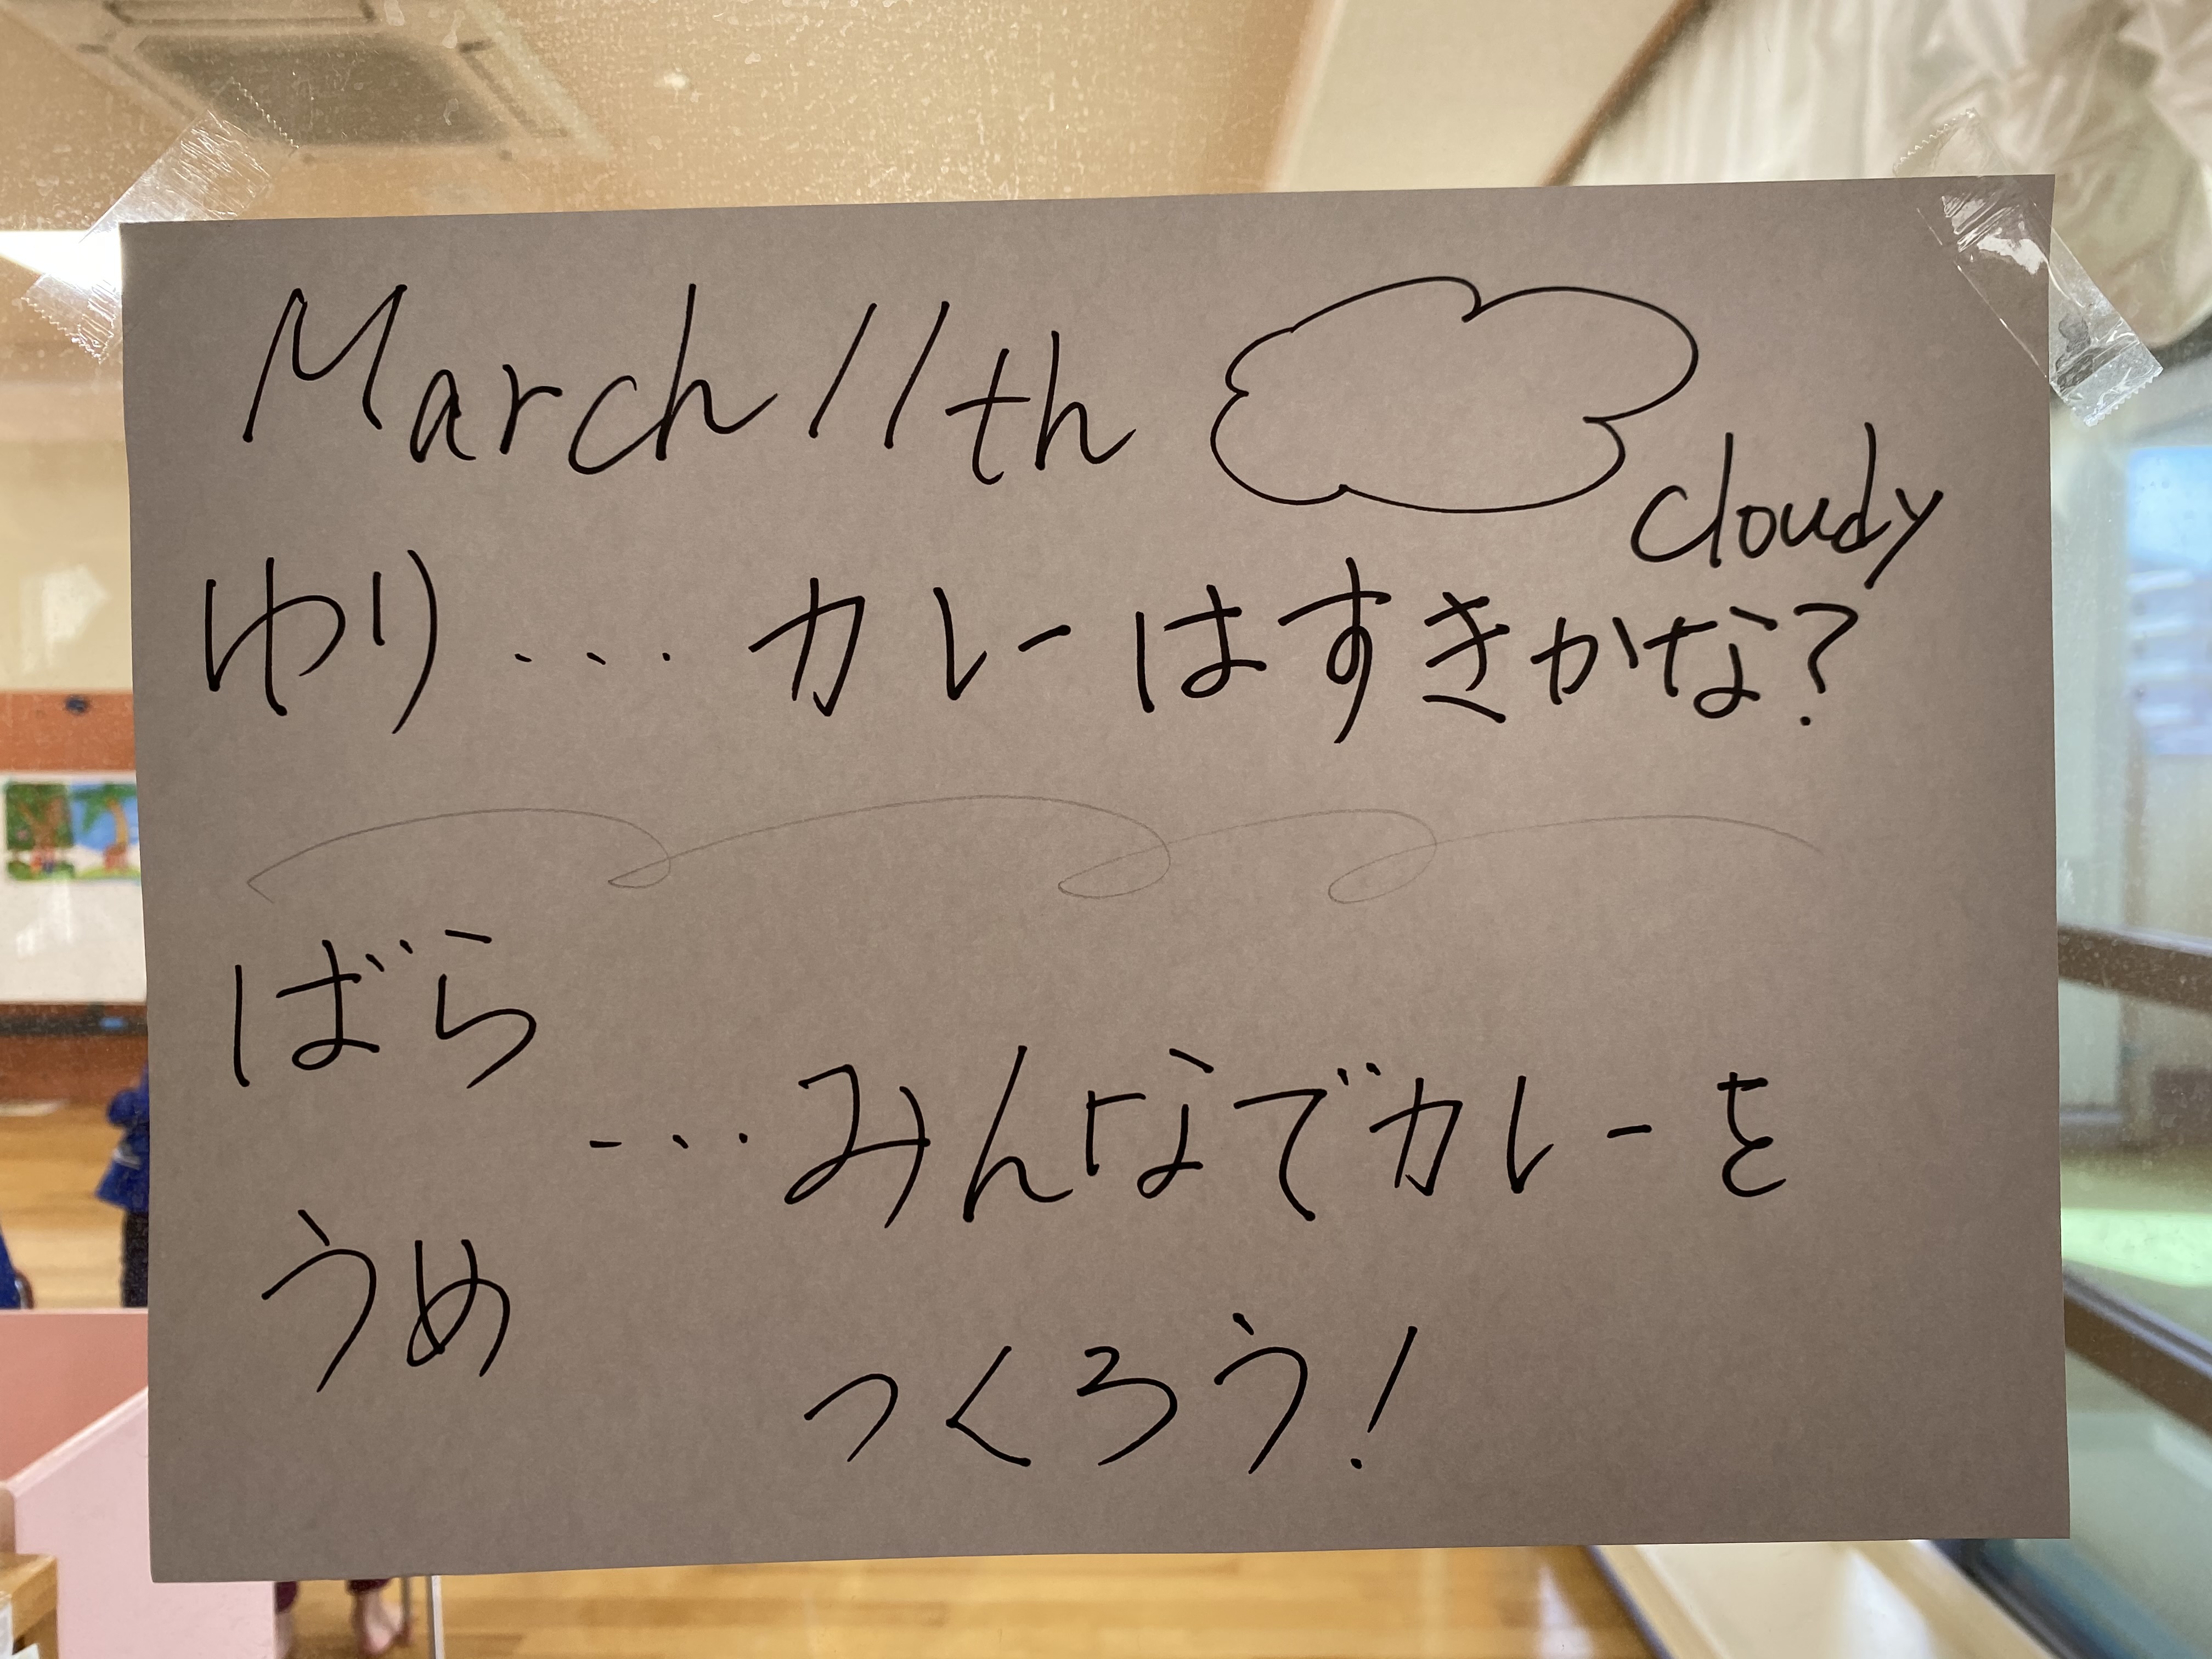 March 11th
cloudy
ゆり・・・カレーはすきかな?
ばら
・・・みんなでカレーを
うめ
つくろう!